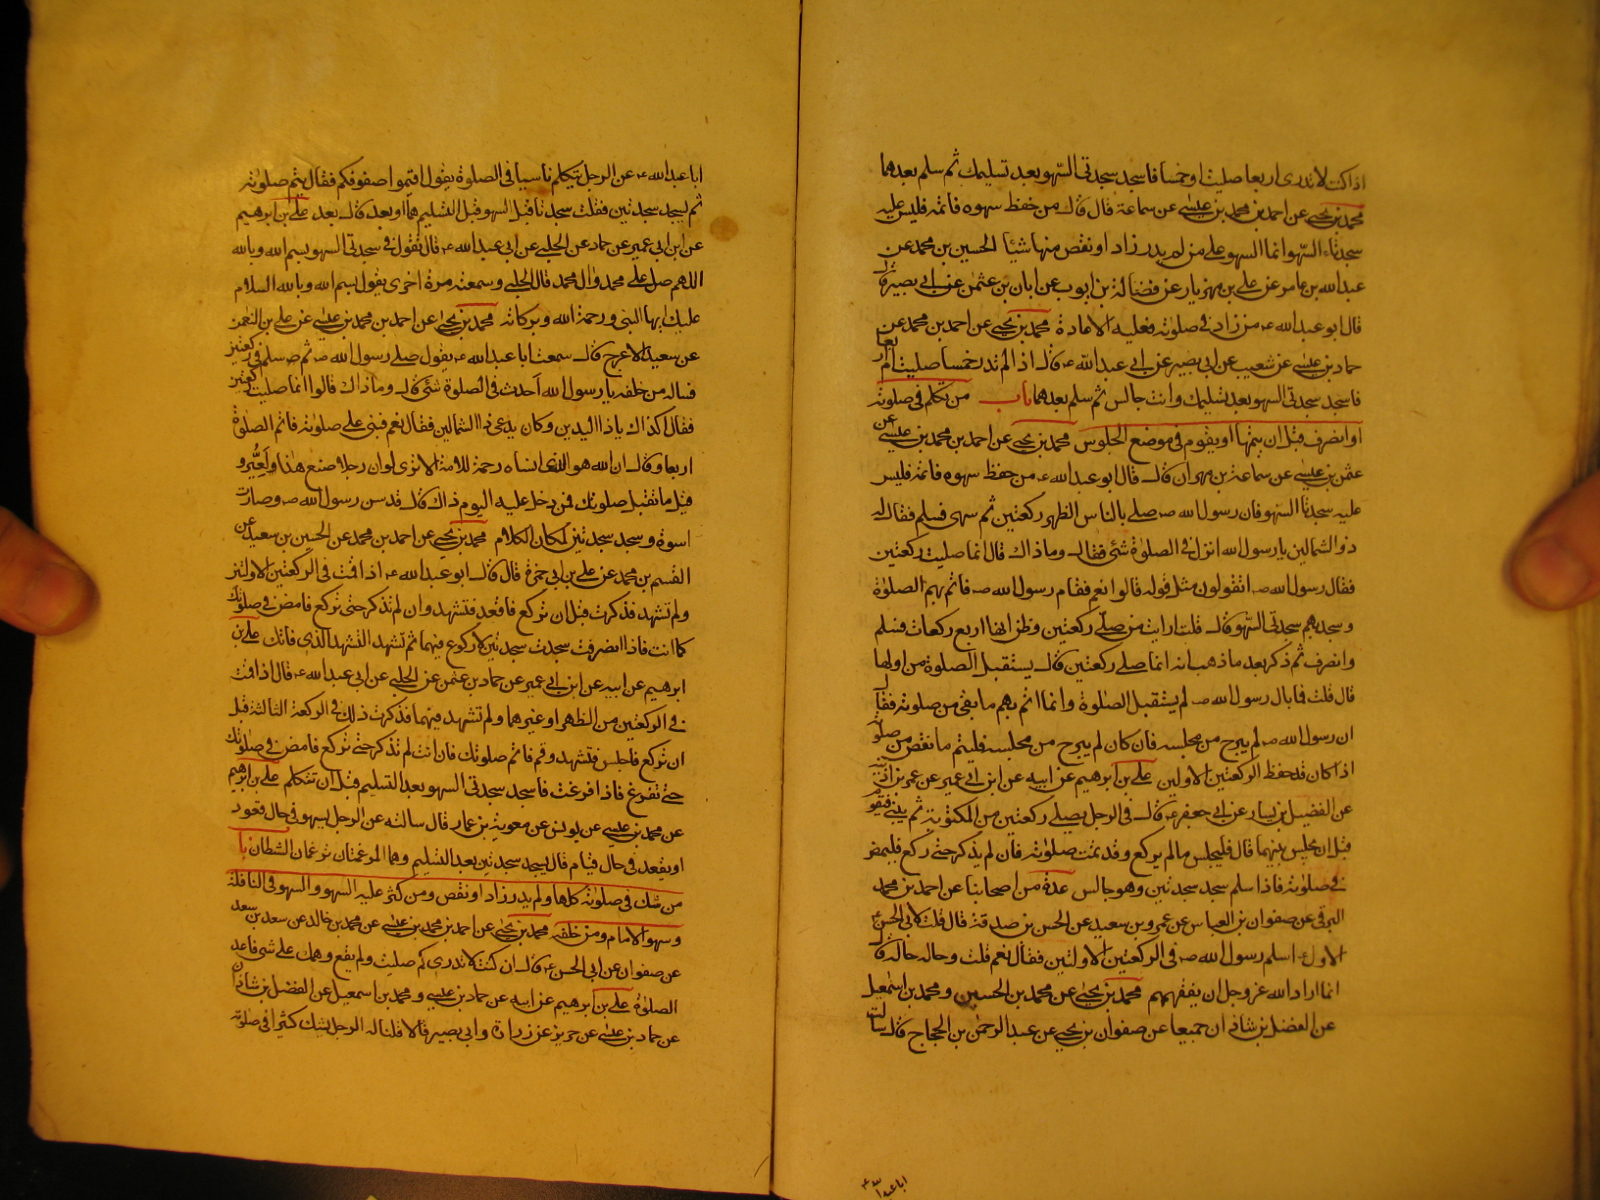 اذا كنت لا تدرى اربعا صليت او خمسا فاسجد سجدتى السهو بعد تسليمك ثم سلم بعدهما
محمد بن يحيى عن احمد بن محمد بن عيسى عن سماعة قال قال من حفظ سهوه فاتمه فليس عليه
سجدتا السهو انما السهو على من لم يدر زاد او نقص منها شيئا الحسين بن محمد عن
عبد الله بن عامر عن على بن مهزيار عن فضالة بن ايوب عن ابان بن عثمن عن ابى بصير قال
قال ابو عبد الله ع من زاد فى صلوته فعليه الاعادة محمد بن يحيى عن احمد بن محمد عن
حماد بن عيسى عن شعيب عن ابى بصير عن ابى عبد الله ع قال اذا لم تدر خمسا صليت ام اربعا
فاسجد سجدتى السهو بعد تسليمك وانت جالس ثم سلم بعدهما باب من تكلم فى صلوته
او انصرف قبل ان يتمها او يقوم فى موضع الجلوس محمد بن يحيى عن احمد بن محمد بن عيسى عن
عثمن بن عيسى عن سماعة بن مهران قال قال ابو عبد الله ع من حفظ سهوه فاتمه فليس
عليه سجدتا السهو فان رسول الله ص صلى بالناس الظهر ركعتين ثم سهى فسلم فقال له
ذو الشمالين يا رسول الله انزل فى الصلوة شئ فقال وما ذاك قال انما صليت ركعتين
فقال رسول الله ص اتقولون مثل قوله قالوا نعم فقام رسول الله ص فاتم بهم الصلوة
وسجد بهم سجدتى السهو قال قلت ارايت من صلى ركعتين وظن انها اربع ركعات فسلم
وانصرف ثم ذكر بعد ما ذهب انه انما صلى ركعتين قال يستقبل الصلوة من اولها
قال قلت فما بال رسول الله ص لم يستقبل الصلوة وانما اتم بهم ما بقى من صلوته فقال
ان رسول الله ص لم يبرح من مجلسه فان كان لم يبرح من مجلسه فليتم ما نقص من صلوته
اذا كان قد حفظ الركعتين الاولين على بن ابرهيم عن ابيه عن ابن ابى عمير عن عمر بن اذينه
عن الفضيل بن يسار عن ابى جعفر ع قال فى الرجل يصلى ركعتين من المكتوبة ثم ينسى فيقوم
قبل ان يجلس بينهما قال فليجلس ما لم يركع وقد تمت صلوته فان لم يذكر حتى ركع فليمض
فى صلوته فاذا سلم سجد سجدتين وهو جالس عدة من اصحابنا عن احمد بن محمد
البرقى عن صفوان بن العباس عن عمرو بن سعيد عن الحسن بن صدقة قال قلت لابى الحسن
الاول ع اسلم رسول الله ص فى الركعتين الاولتين فقال نعم قلت وحاله حاله قال
انما اراد الله عز وجل ان يفقههم محمد بن يحيى عن محمد بن الحسين ومحمد بن اسمعيل
عن الفضل بن شاذان جميعا عن صفوان بن يحيى عن عبد الرحمن بن الحجاج قال سالت
ابا عبد الله ع
ابا عبد الله ع عن الرجل يتكلم ناسيا فى الصلوة يقول اقيموا صفوفكم فقال يتم صلوته
ثم يسجد سجدتين فقلت سجدتا قبل السهو قبل التسليم هما او بعد قال بعد على بن ابرهيم
عن ابن ابى عمير عن حماد عن الحلبى عن ابى عبد الله ع قال تقول فى سجدتى السهو بسم الله وبالله
اللهم صل على محمد وال محمد قال الحلبى وسمعته مرة اخرى يقول بسم الله وبالله السلام
عليك ايها النبى ورحمة الله وبركاته محمد بن يحيى عن احمد بن محمد بن عيسى عن على بن النعمن
عن سعيد الاعرج قال سمعت ابا عبد الله ع يقول صلى رسول الله ص ثم سلم فى ركعتين
فساله من خلفه يا رسول الله احدث فى الصلوة شئ قال وما ذاك قالوا انما صليت ركعتين
فقال اكذاك يا ذا اليدين وكان يدعى ذا الشمالين فقال نعم فبنى على صلوته فاتم الصلوة
اربعا وقال ان الله هو الذى انساه رحمة للامة الا ترى لو ان رجلا صنع هذا لعير و
قيل ما تقبل صلوتك فمن دخل عليه اليوم ذاك قال قد سن رسول الله ص وصارت
اسوة وسجد سجدتين لمكان الكلام محمد بن يحيى عن احمد بن محمد عن الحسين بن سعيد عن
القسم بن محمد عن على بن ابى حمزة قال قال ابو عبد الله ع اذا قمت فى الركعتين الاولتين
ولم تشهد فذكرت قبل ان تركع فاقعد فتشهد وان لم تذكر حتى تركع فامض فى صلوتك
كما انت فاذا انصرفت سجدت سجدتين لا ركوع فيهما ثم تشهد التشهد الذى فاتك على بن
ابرهيم عن ابيه عن ابن ابى عمير عن حماد بن عثمن عن الحلبى عن ابى عبد الله ع قال اذا قمت
فى الركعتين من الظهر او غيرهما ولم تشهد فيهما فذكرت ذلك فى الركعة الثالثة قبل
ان تركع فاجلس فتشهد وقم فاتم صلوتك فان انت لم تذكر حتى تركع فامض فى صلوتك
حتى تفرغ فاذا فرغت فاسجد سجدتى السهو بعد التسليم قبل ان تتكلم على بن ابرهيم
عن محمد بن عيسى عن يونس عن معوية بن عمار قال سالته عن الرجل يسهو فى حال قعود
او يقعد فى حال قيام قال يسجد سجدتين بعد التسليم وهما المرغمتان ترغمان الشطان با
من شك فى صلوته كلها ولم يدر زاد او نقص ومن كثر عليه السهو والسهو فى النافلة
وسهو الامام ومن خلفه محمد بن يحيى عن احمد بن محمد بن عيسى عن محمد بن خالد عن سعد بن سعد
عن صفوان عن ابى الحسن ع قال ان كنت لا تدرى كم صليت ولم يقع وهمك على شئ فاعد
الصلوة على بن ابرهيم عن ابيه عن حماد بن عيسى ومحمد بن اسمعيل عن الفضل بن شاذان
عن حماد بن عيسى عن حريز عن زرارة وابى بصير قالا قلنا له الرجل يشك كثيرا فى صلوته